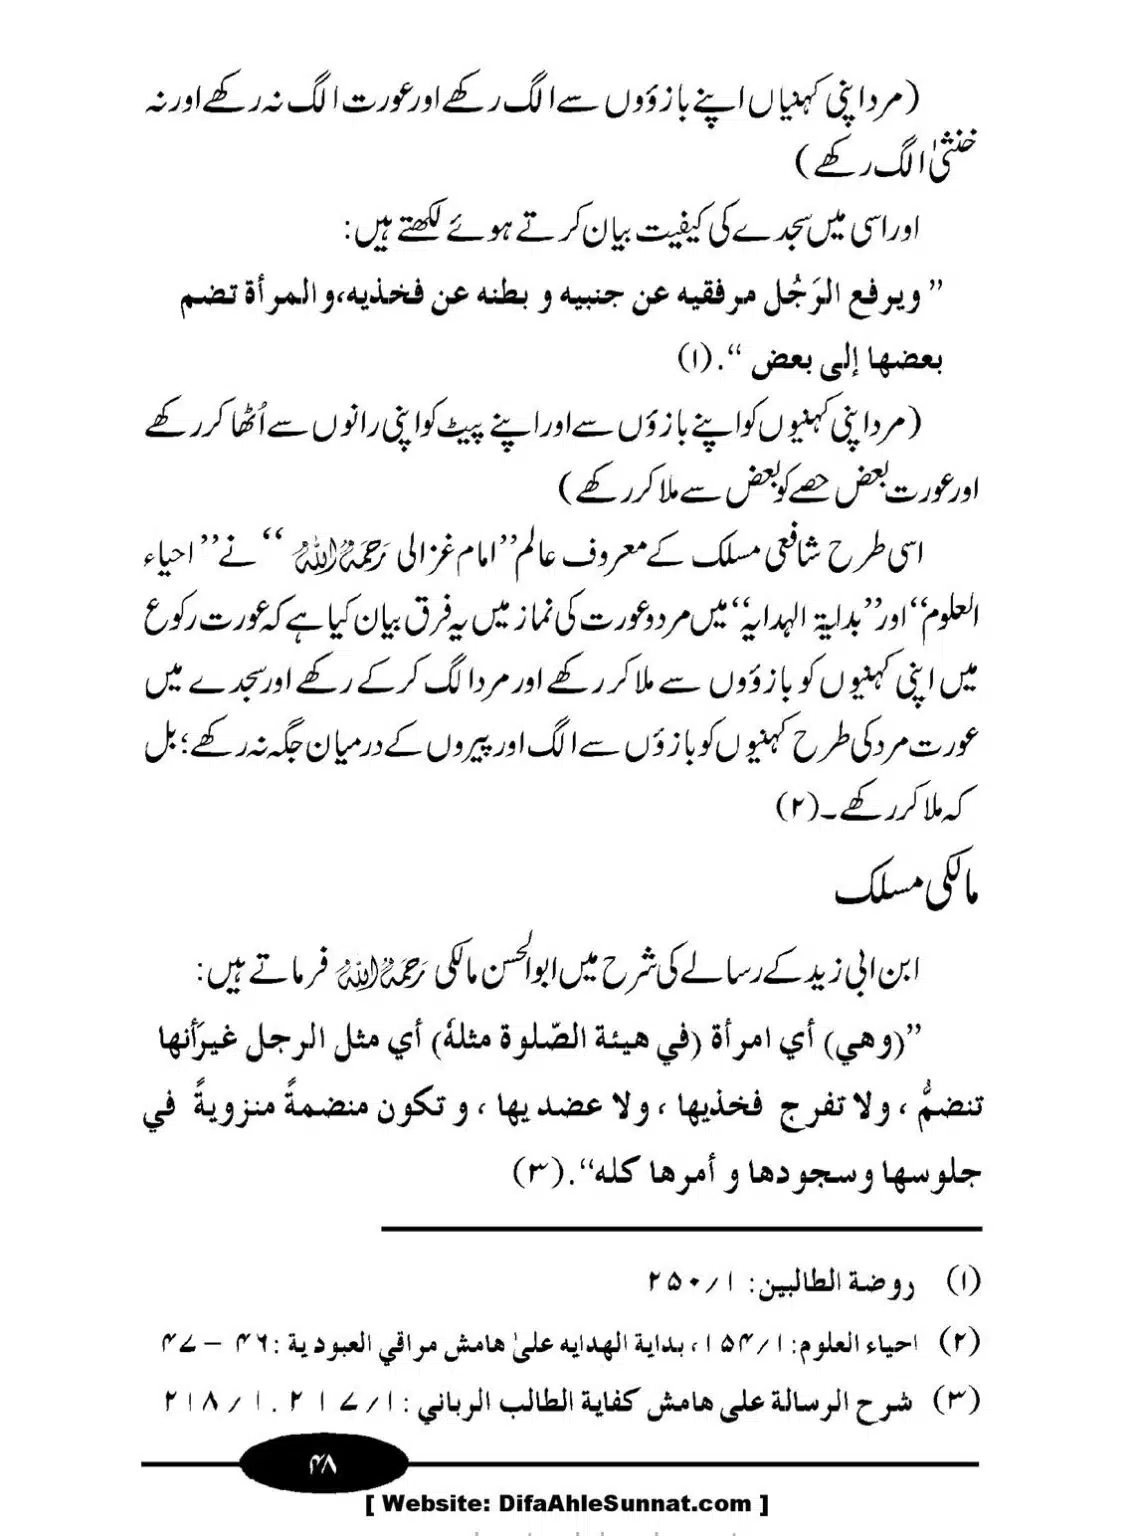 (مرد اپنی کہنیاں اپنے بازؤوں سے الگ رکھے اور عورت الگ نہ رکھے اور نہ
خنثیٰ الگ رکھے)
اور اسی میں سجدے کی کیفیت بیان کرتے ہوئے لکھتے ہیں:
” ويرفع الرَجُل مرفقيه عن جنبيه و بطنه عن فخذيه،و المرأة تضم
بعضها إلى بعض “.(۱)
(مرد اپنی کہنیوں کو اپنے بازؤں سے اور اپنے پیٹ کو اپنی رانوں سے اُٹھا کر رکھے
اور عورت بعض حصے کو بعض سے ملا کر رکھے)
اسی طرح شافعی مسلک کے معروف عالم ”امام غزالی رَحِمَهُ اللهُ “ نے ”احیاء
العلوم“ اور ”بدایۃ الہدایہ“ میں مرد و عورت کی نماز میں یہ فرق بیان کیا ہے کہ عورت رکوع
میں اپنی کہنیوں کو بازؤوں سے ملا کر رکھے اور مرد الگ کر کے رکھے اور سجدے میں
عورت مرد کی طرح کہنیوں کو بازؤں سے الگ اور پیروں کے درمیان جگہ نہ رکھے؛ بل
کہ ملا کر رکھے۔(۲)
مالکی مسلک
ابن ابی زید کے رسالے کی شرح میں ابوالحسن مالکی رَحِمَهُ اللهُ فرماتے ہیں:
”(وهي) أي امرأة (في هيئة الصّلوة مثلهٗ) أي مثل الرجل غيرَأنها
تنضمُّ ، ولا تفرج فخذيها ، ولا عضديها ، و تكون منضمةً منزويةً في
جلوسها وسجودها و أمرها كله“.(۳)
(۱) روضة الطالبين: ۱/۲۵۰
(۲) احياء العلوم: ۱/۱۵۴، بداية الهدايه علىٰ هامش مراقي العبودية :۴۶ – ۴۷
(۳) شرح الرسالة على هامش كفاية الطالب الرباني :۱/۲۱۷. ۱/۲۱۸
۴۸
[ Website: DifaAhleSunnat.com ]